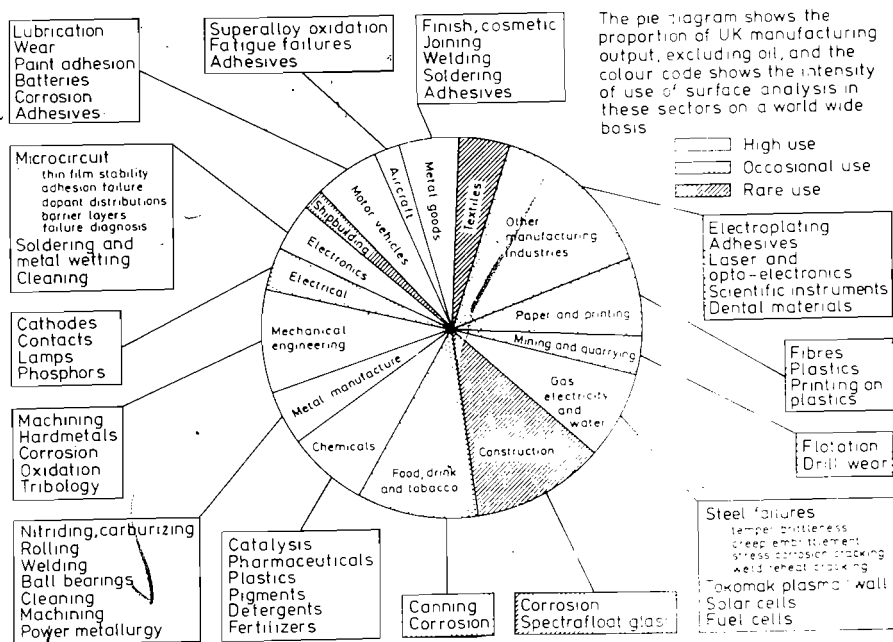 Lubrication
Wear
Paint adhesion
Batteries
Corrosion
Adhesives
Superalloy oxidation
Fatigue failures
Adhesives
Finish, cosmetic
Joining
Welding
Soldering
Adhesives
The pie diagram shows the
proportion of UK manufacturing
output, excluding oil, and the
colour code shows the intensity
of use of surface analysis in
these sectors on a world wide
basis
High use
Occasional use
Rare use
Microcircuit
thin film stability
adhesion failure
dopant distributions
barrier layers
failure diagnosis
Soldering and
metal wetting
Cleaning
Cathodes
Contacts
Lamps
Phosphors
Machining
Hardmetals
Corrosion
Oxidation
Tribology
Nitriding, carburizing
Rolling
Welding
Ball bearings
Cleaning
Machining
Power metallurgy
Catalysis
Pharmaceuticals
Plastics
Pigments
Detergents
Fertilizers
Canning
Corrosion
Corrosion
Spectrafloat glass
Steel failures
temper brittleness
creep embrittlement
stress corrosion cracking
weld reheat cracking
Tokomak plasma wall
Solar cells
Fuel cells
Flotation
Drill wear
Fibres
Plastics
Printing on
plastics
Electroplating
Adhesives
Laser and
opto-electronics
Scientific instruments
Dental materials
Metal goods
Textiles
Other
manufacturing
industries
Paper and printing
Mining and quarrying
Gas
electricity
and
water
Construction
Food, drink
and tobacco
Chemicals
Metal manufacture
Mechanical
engineering
Electrical
Electronics
Shipbuilding
Motor vehicles
Aircraft